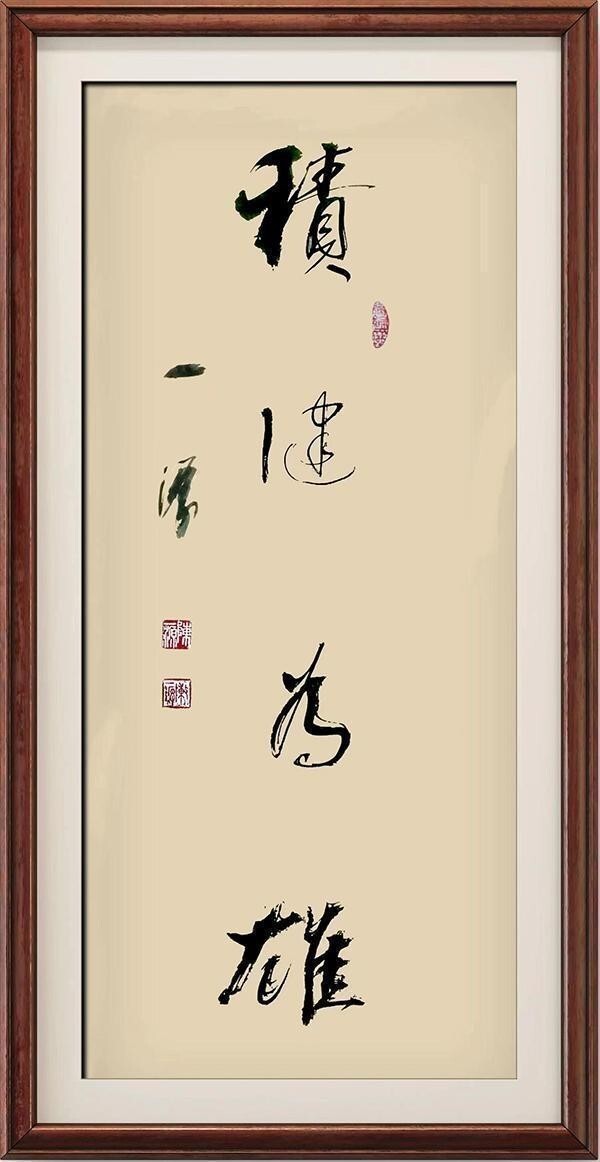 積健為雄
一源